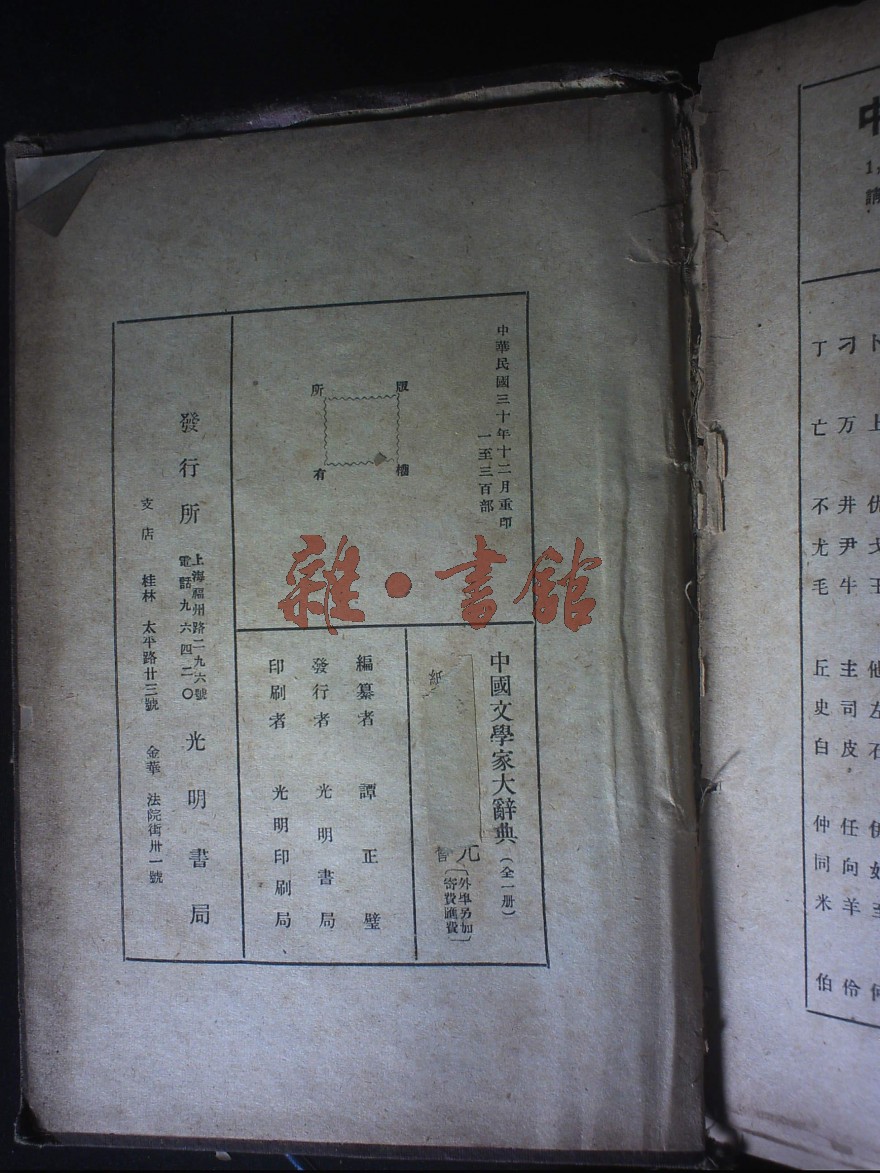 中華民國三十年十二月重印
一至三百部
版權
所有
中國文學家大辭典（全一册）
紙
元
〔外埠另加
寄費匯費〕
編纂者 譚正璧
發行者 光明書局
印刷者 光明印刷局
發行所 上海福州路二九六號
電話九六四二〇 光明書局
支店 桂林 太平路廿三號 金華 法院街卅一號
雜·書館
中
卜 上
刁 万 井 尹 牛 主 司 皮 任 向 羊 伶
丁 亡 不 尤 毛 丘 史 白 仲 同 米 伯